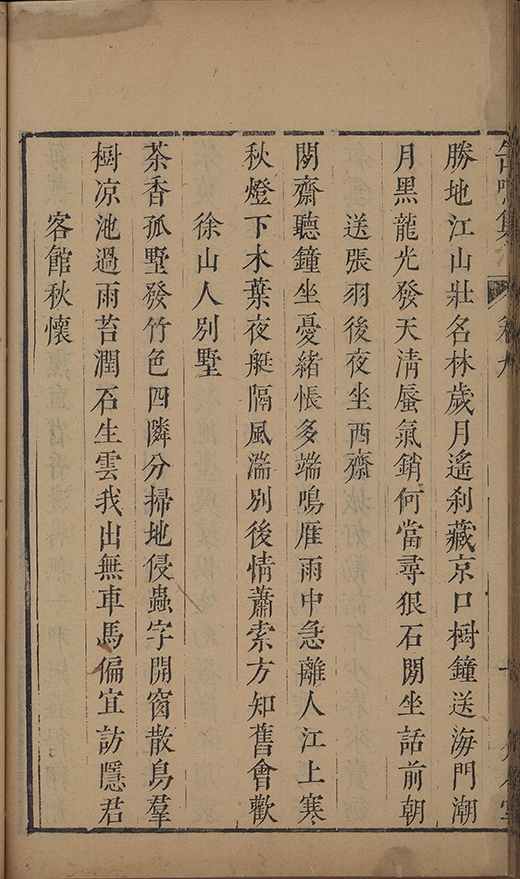 缶鳴集 卷九
勝地江山壯名林歲月遙刹藏京口樹鐘送海門潮
月黑龍光發天清蜃氣銷何當尋狠石閒坐話前朝
送張羽後夜坐西齋
閉齋聽鐘坐憂緒悵多端鳴雁雨中急離人江上寒
秋燈下木葉夜艇隔風湍別後情蕭索方知舊會歡
徐山人別墅
茶香孤墅發竹色四隣分掃地侵蟲字開窗散鳥羣
樹凉池過雨苔潤石生雲我出無車馬偏宜訪隱君
客館秋懷